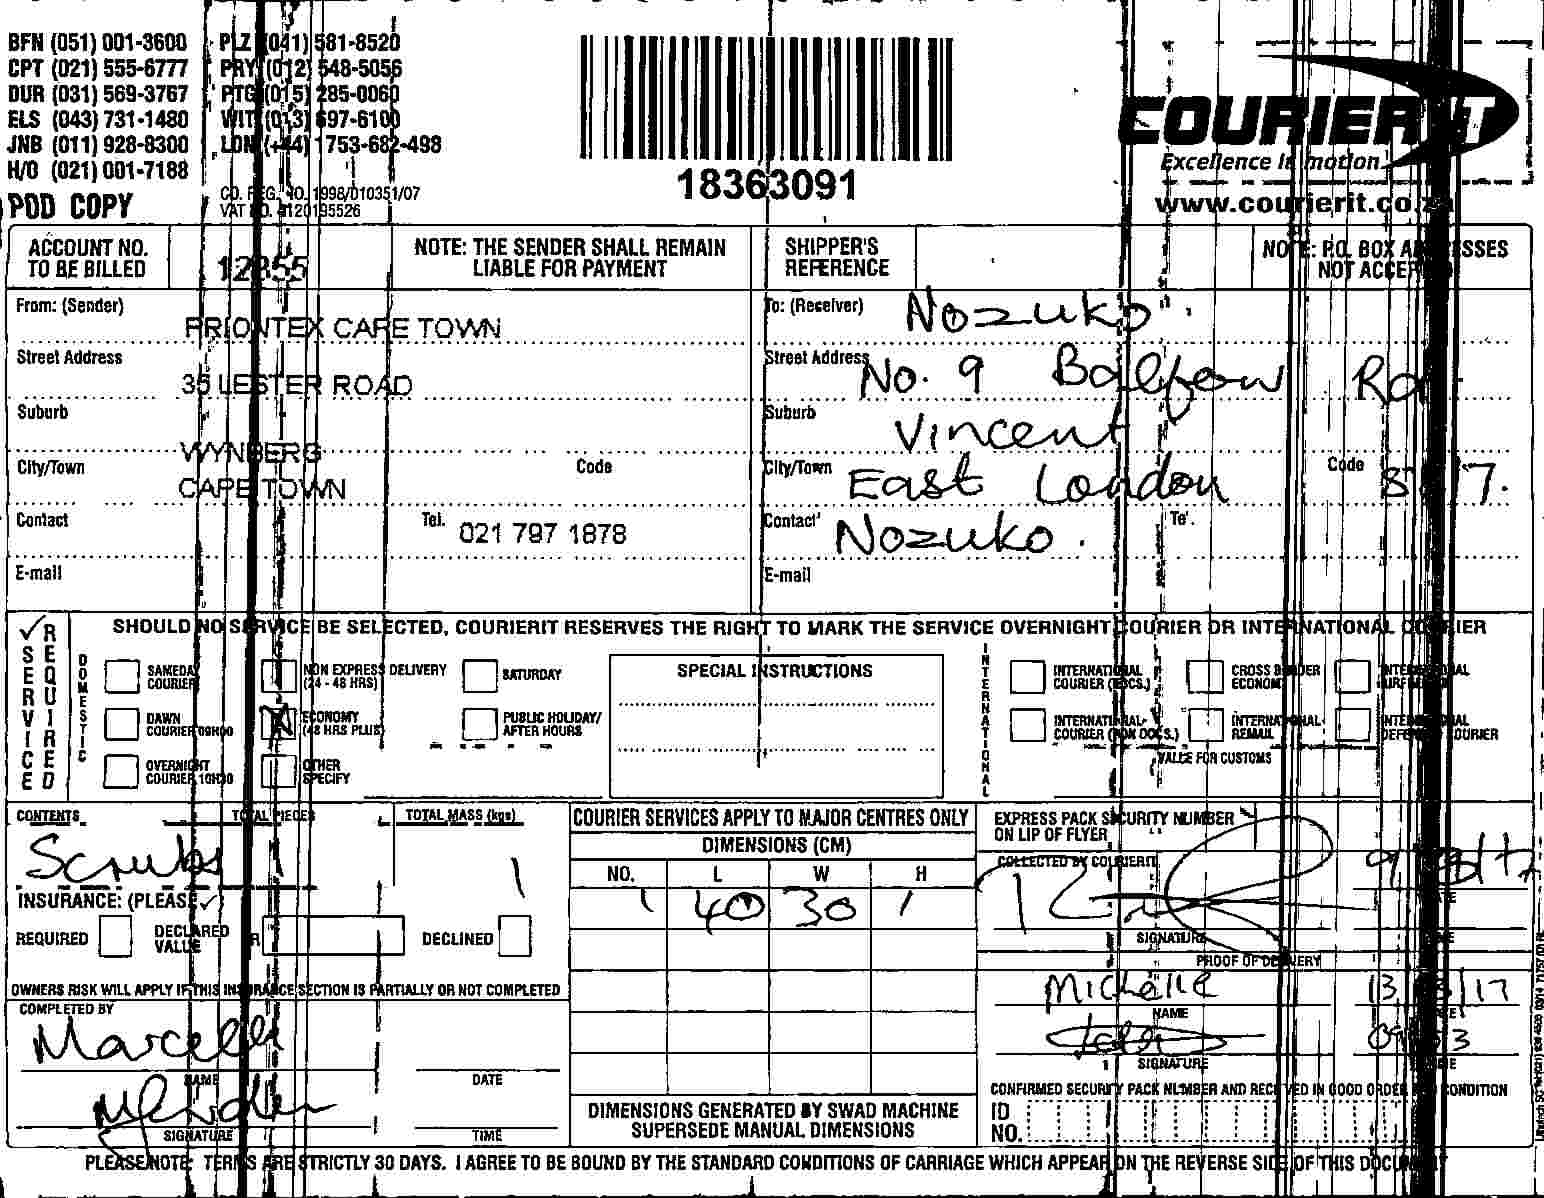 BFN (051) 001-3600 PLZ (041) 581-8520
CPT (021) 555-6777 PRY (012) 548-5056
DUR (031) 569-3767 PTG (015) 285-0060
ELS (043) 731-1480 WIT (013) 697-6100
JNB (011) 928-8300 LDN (+44) 1753-682-498
H/O (021) 001-7188
CO. REG. NO. 1998/010351/07
POD COPY VAT NO. 4120195526
18363091
COURIER IT
Excellence in motion
www.courierit.co.za
ACCOUNT NO. TO BE BILLED 12855
NOTE: THE SENDER SHALL REMAIN LIABLE FOR PAYMENT
SHIPPER'S REFERENCE
NOTE: P.O. BOX ADDRESSES NOT ACCEPTED
From: (Sender) PRIONTEX CAPE TOWN
Street Address 35 LESTER ROAD
Suburb WYNBERG
City/Town CAPE TOWN Code
Contact Tel. 021 797 1878
E-mail
To: (Receiver) Nozuko.
Street Address No. 9 Balfour Rd
Suburb Vincent
City/Town East London Code
Contact Nozuko. Tel.
E-mail
SERVICE REQUIRED
SHOULD NO SERVICE BE SELECTED, COURIERIT RESERVES THE RIGHT TO MARK THE SERVICE OVERNIGHT COURIER OR INTERNATIONAL COURIER
DOMESTIC
SAMEDAY COURIER
NON EXPRESS DELIVERY (24 - 48 HRS)
SATURDAY
DAWN COURIER 09H00
X ECONOMY (48 HRS PLUS)
PUBLIC HOLIDAY/ AFTER HOURS
OVERNIGHT COURIER 10H30
OTHER SPECIFY
SPECIAL INSTRUCTIONS
INTERNATIONAL
INTERNATIONAL COURIER (DOCS.)
CROSS BORDER ECONOMY
INTERNATIONAL AIRFREIGHT
INTERNATIONAL COURIER (NON DOCS.)
INTERNATIONAL REMAIL
INTERNATIONAL DEFERRED COURIER
VALUE FOR CUSTOMS
CONTENTS TOTAL PIECES TOTAL MASS (kgs)
Scrubs 1 1
INSURANCE: (PLEASE ✓)
REQUIRED DECLARED VALUE R DECLINED
OWNERS RISK WILL APPLY IF THIS INSURANCE SECTION IS PARTIALLY OR NOT COMPLETED
COMPLETED BY
NAME DATE
SIGNATURE TIME
COURIER SERVICES APPLY TO MAJOR CENTRES ONLY
DIMENSIONS (CM)
NO. L W H
1 40 30 1
DIMENSIONS GENERATED BY SWAD MACHINE SUPERSEDE MANUAL DIMENSIONS
EXPRESS PACK SECURITY NUMBER ON LIP OF FLYER
COLLECTED BY COURIERIT
SIGNATURE
PROOF OF DELIVERY
Michelle
NAME
SIGNATURE
CONFIRMED SECURITY PACK NUMBER AND RECEIVED IN GOOD ORDER AND CONDITION
ID NO.
PLEASE NOTE: TERMS ARE STRICTLY 30 DAYS. I AGREE TO BE BOUND BY THE STANDARD CONDITIONS OF CARRIAGE WHICH APPEAR ON THE REVERSE SIDE OF THIS DOCUMENT